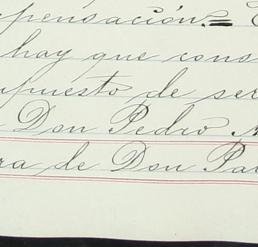 pensación.= C
hay que cons
upuesto de ser
Don Pedro
ra de Don Pa